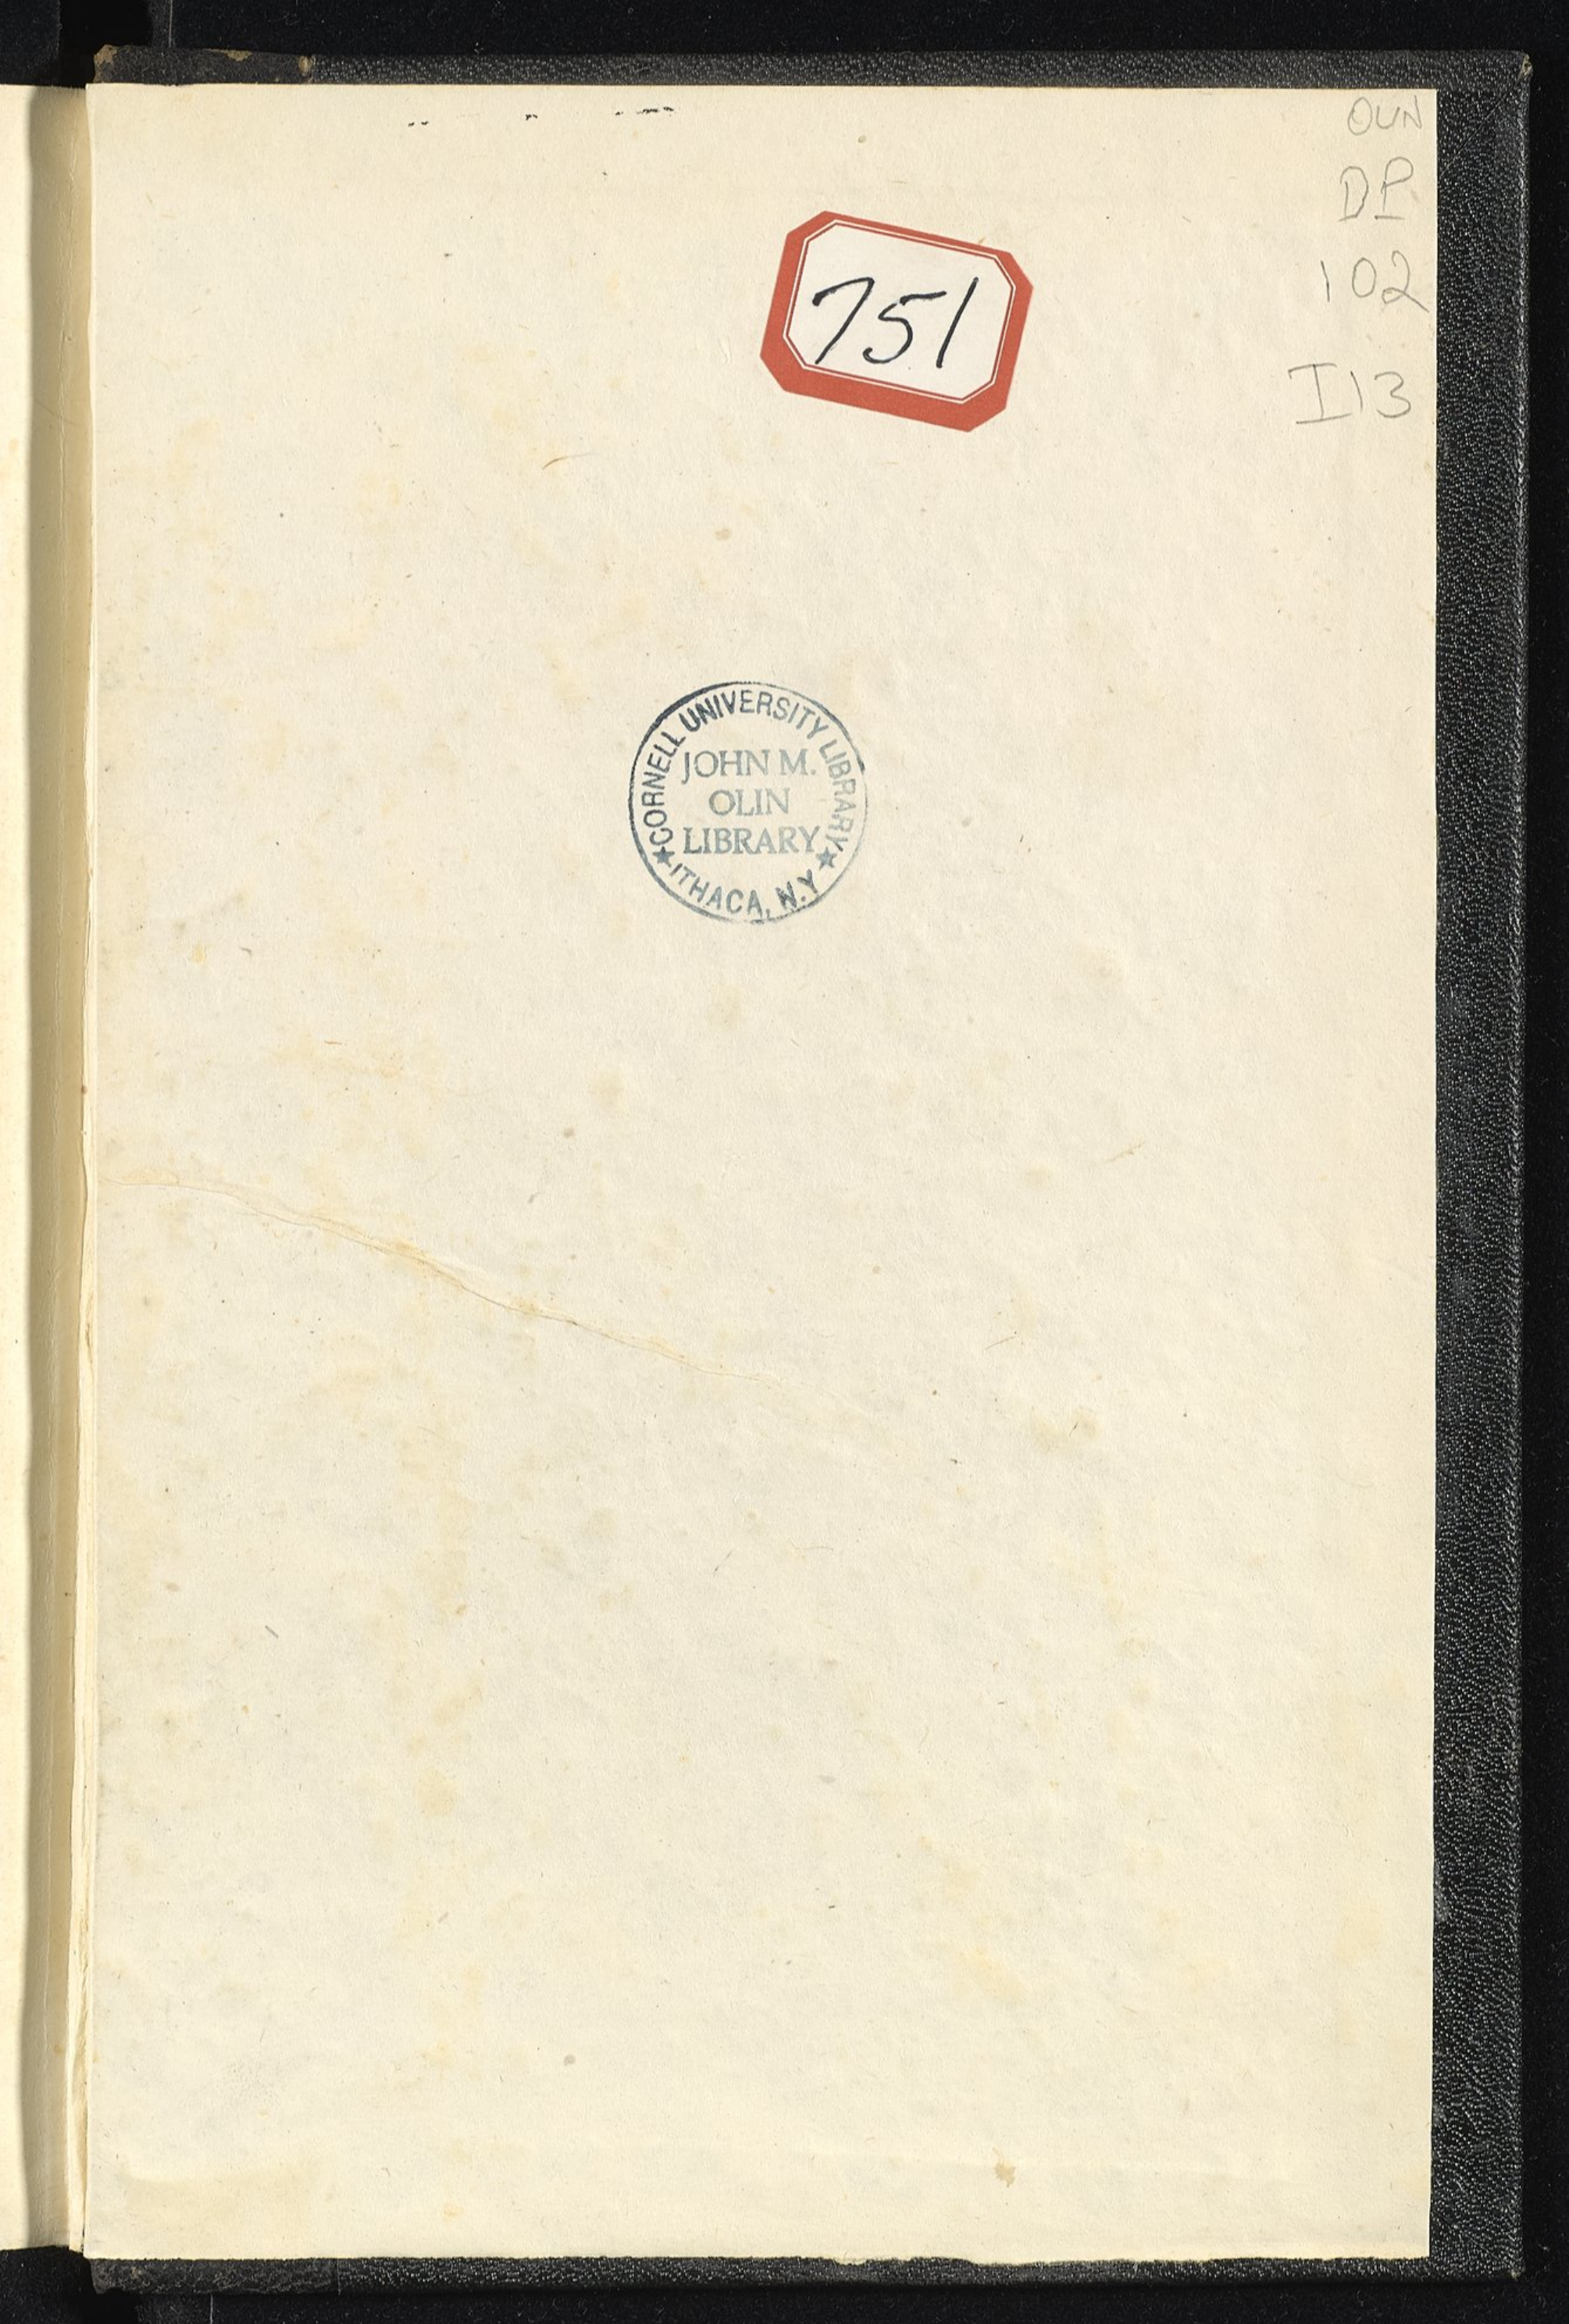 OLIN
DP
102
I13
751
CORNELL UNIVERSITY LIBRARY
JOHN M.
OLIN
LIBRARY
ITHACA, N.Y